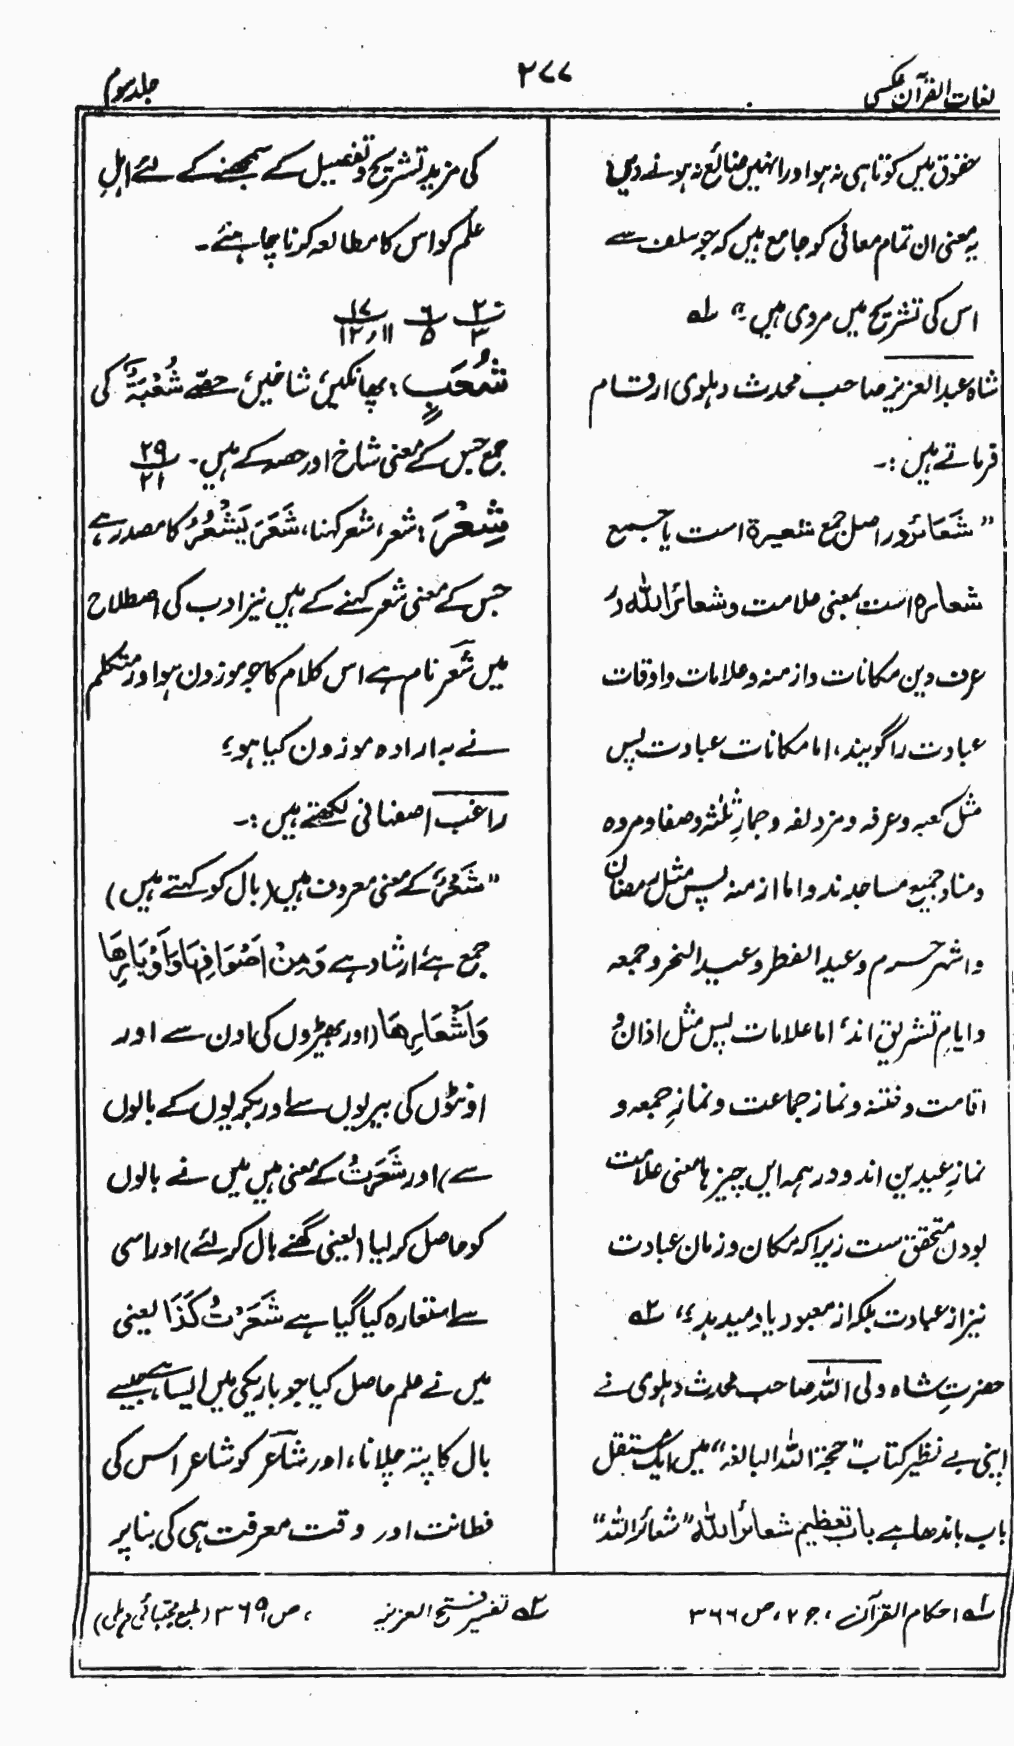 لغات القرآن عکسی
۲۷۷
جلد سوم
حقوق میں کوتاہی نہ ہو اور انہیں ضائع نہ ہونے دیں؛
یہ معنی ان تمام معانی کو جامع ہیں کہ جو سلف سے
اس کی تشریح میں مروی ہیں۔" ۱ھ
شاہ عبد العزیز صاحب محدث دہلوی ارقام
فرماتے ہیں :۔
" شَعَائر در اصل جمع شعیرۃ است یا جمیع
شعارہ است بمعنی علامت و شعائر اللہ در
عرف دین مکانات و ازمنہ و علامات و اوقات
عبادت را گویند، اما مکانات عبادت پس
مثل کعبہ و عرفہ و مزدلفہ و جمارِ ثلٰثہ و صفا و مروہ
و منا و جمیع مساجد ند و اما ازمنہ پس مثل رمضان
و اشہر حرم و عید الفطر و عید النحر و جمعہ
و ایام تشریق اند، اما علامات پس مثل اذان و
اقامت و ختنہ و نماز جماعت و نمازِ جمعہ و
نمازِ عیدین اند و در ہمہ ایں چیزہا معنی علامت
بودن متحقق ست زیرا کہ مکان و زمان عبادت
نیز از عبادت بلکہ از معبود یاد میدہد،" ۲ھ
حضرت شاہ ولی اللہ صاحب محدث دہلوی نے
اپنی بے نظیر کتاب "حجۃ اللہ البالغہ" میں ایک مستقل
باب باندھا ہے باب تعظیم شعائر اللہ "شعائر اللہ"
کی مزید تشریح و تفصیل کے سمجھنے کے لئے اہلِ
علم کو اس کا مطالعہ کرنا چاہئے۔
۲/۳ ۶/۵ ۱۷/۱۱ر۱۲
شُعَبٍ : پھانکیں، شاخیں، حصّے، شُعْبَۃٌ کی
جمع جس کے معنی شاخ اور حصہ کے ہیں۔ ۲۹/۲۱
شِعْرَ : شعر، شعر کہنا، شَعَرَ یَشْعُرُ کا مصدر ہے
جس کے معنی شعر کہنے کے ہیں نیز ادب کی اصطلاح
میں شعر نام ہے اس کلام کا جو موزون ہو اور متکلم
نے بہ ارادہ موزون کیا ہو،
راغب اصفہانی لکھتے ہیں :۔
"شَعْرٌ کے معنی معروف ہیں (بال کو کہتے ہیں)
جمع ہے، ارشاد ہے وَمِنْ اَصْوَافِہَا وَاَوْبَارِھَا
وَاَشْعَارِھَا (اور بھیڑوں کی اون سے اور
اونٹوں کی ببریوں سے اور بکریوں کے بالوں
سے) اور شَعَرْتُ کے معنی ہیں میں نے بالوں
کو حاصل کر لیا (یعنی گھنے بال کر لئے) اور اسی
سے استعارہ کیا گیا ہے شَعَرْتُ کَذَا یعنی
میں نے علم حاصل کیا جو باریکی میں ایسا ہے جیسے
بال کا پتہ چلانا، اور شاعر کو شاعر اس کی
فطانت اور دقت معرفت ہی کی بنا پر
۱ھ احکام القرآن، ج ۲، ص ۳۶۶
۲ھ تفسیر فتح العزیز، ص ۳۶۹ (طبع مجتبائی دہلی)